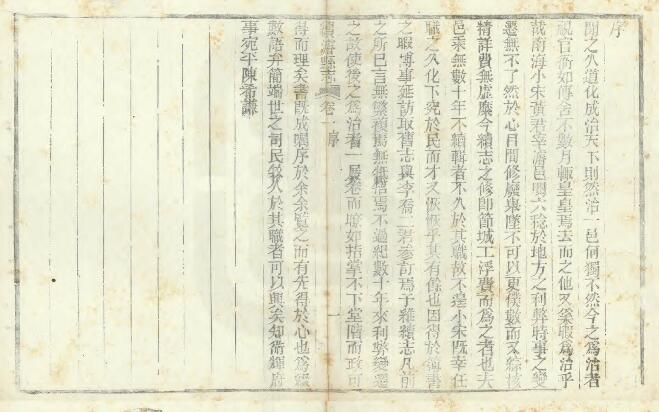 序
聞之久道化成治天下則然治一邑何獨不然今之為治者
視官衙如傳舍不數月輒皇皇焉去而之他又奚暇為治乎
哉南海小宋黃君宰濬邑閱六稔於地方之利弊時事之變
惡無不了然於心目間修廢舉墜不可以更僕數而又綜核
精詳費無虛糜今續志之修即節城工浮費而為之者也夫
邑乘無數十年不續輯者不久於其職故不遑小宋既幸任
職之久化下究於民而才又恢恢乎其有餘也因得於簿書
之暇博事延訪取舊志與李喬二君參訂焉予維續志凡前
之所已言無繁複焉無
焉不過紀數十年來利弊變遷
之故使後之為治者一展卷而瞭如指掌不下堂階而政可
續濬縣志 卷一 序 一
得而理矣書既成囑序於余余覽之而有先得於心也爰綴
數語弁簡端世之司民牧久於其職者可以興矣知衛輝府
事宛平陳希謙